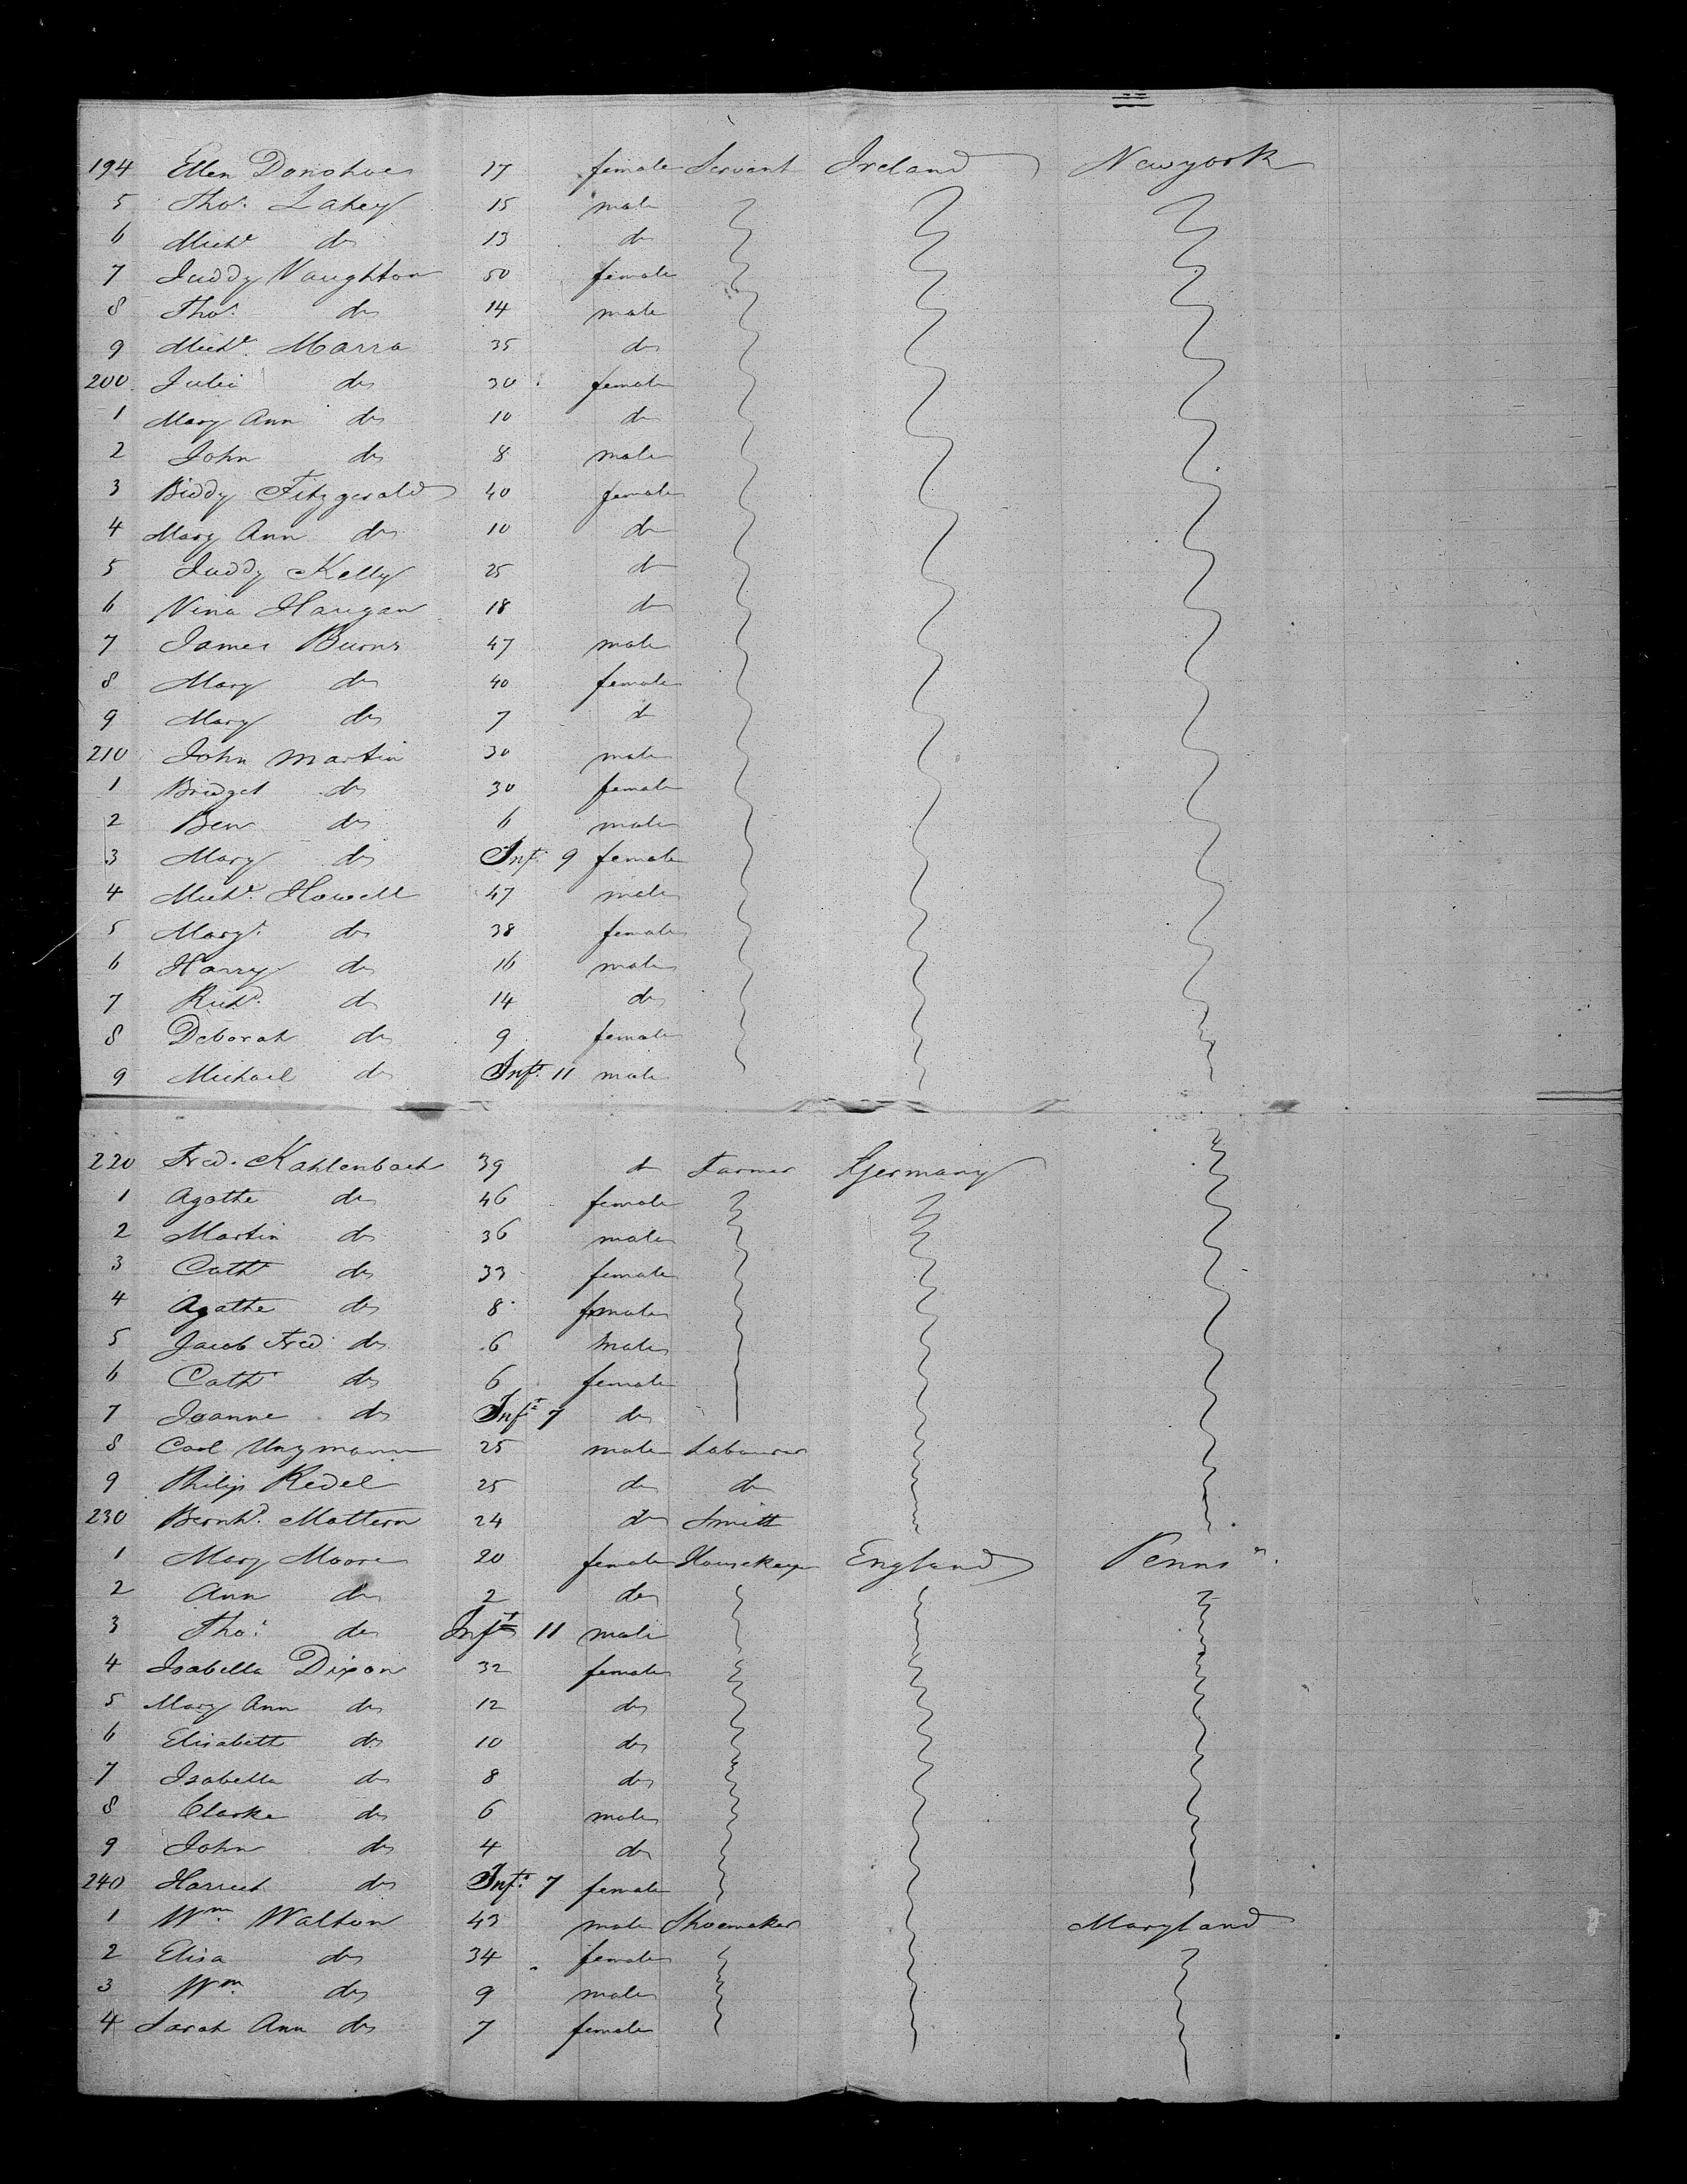 194 Ellen Donohoe 17 female Servant Ireland Newyork
5 Thos. Lahey 15 male
6 Michl do 13 do
7 Juddy Naughton 50 female
8 Thos. do 14 male
9 Michl. Marra 35 do
200 Julia do 30 female
1 Mary Ann do 10 do
2 John do 8 male
3 Biddy Fitzgerald 40 female
4 Mary Ann do 10 do
5 Juddy Kelly 25 do
6 Nina 18 do
7 James Burns 47 male
8 Mary do 40 female
9 Mary do 7 do
210 John Martin 30 male
1 Bridget do 30 female
2 Ben do 6 male
3 Mary do Inft. 9 female
4 Michl. Howell 47 male
5 Margt. do 38 female
6 Harry do 16 male
7 Richd. do 14 do
8 Deborah do 9 female
9 Michael do Inft. 11 male
220 Fred. Kahlenbach 39 do Farmer Germany
1 Agathe do 46 female
2 Martin do 36 male
3 Cathe do 33 female
4 Agathe do 8 female
5 Jacob Fred do 6 male
6 Cath do 6 female
7 Joanne do Inft 7 do
8 Carl Ungmann 25 male Labourer
9 Philip Redel 25 do do
230 Bernhd. Mattern 24 do Smith
1 Mary Moore 20 female Housekeepr England Pennsa.
2 Ann do 2 do
3 Thos. do Inft 11 male
4 Isabella Dixon 32 female
5 Mary Ann do 12 do
6 Elisabeth do 10 do
7 Isabella do 8 do
8 Clarke do 6 male
9 John do 4 do
240 Harriet do Inft. 7 female
1 Wm. Walton 43 male Shoemaker Maryland
2 Elisa do 34 female
3 Wm. do 9 male
4 Sarah Ann do 7 female